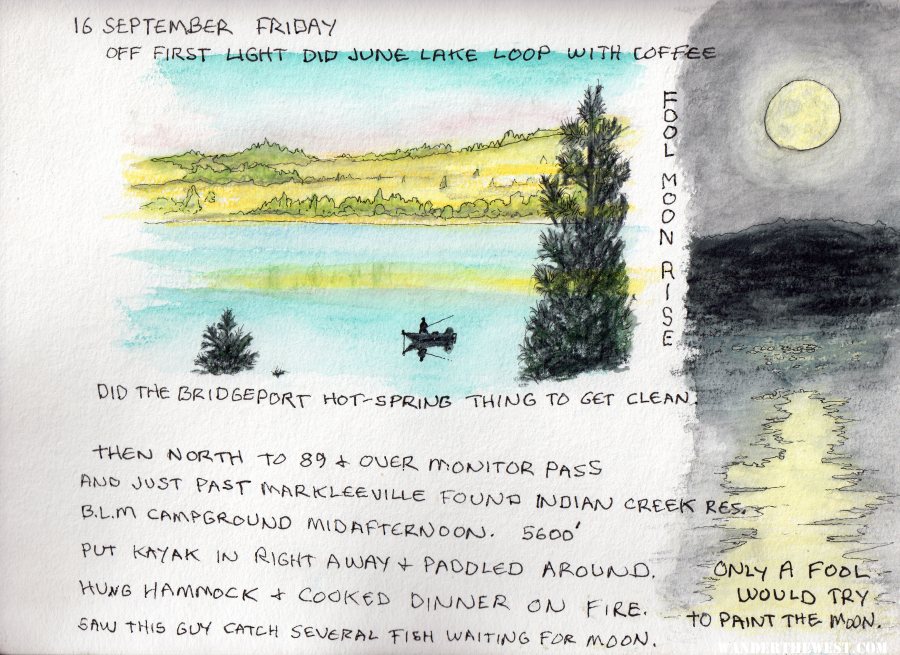 16 SEPTEMBER FRIDAY
OFF FIRST LIGHT DID JUNE LAKE LOOP WITH COFFEE
FOOL MOON RISE
DID THE BRIDGEPORT HOT-SPRING THING TO GET CLEAN.
THEN NORTH TO 89 & OVER MONITOR PASS
AND JUST PAST MARKLEEVILLE FOUND INDIAN CREEK RES.
B.L.M CAMPGROUND MIDAFTERNOON. 5600'
PUT KAYAK IN RIGHT AWAY & PADDLED AROUND.
HUNG HAMMOCK & COOKED DINNER ON FIRE.
SAW THIS GUY CATCH SEVERAL FISH WAITING FOR MOON.
ONLY A FOOL
WOULD TRY
TO PAINT THE MOON.
WANDERTHEWEST.COM